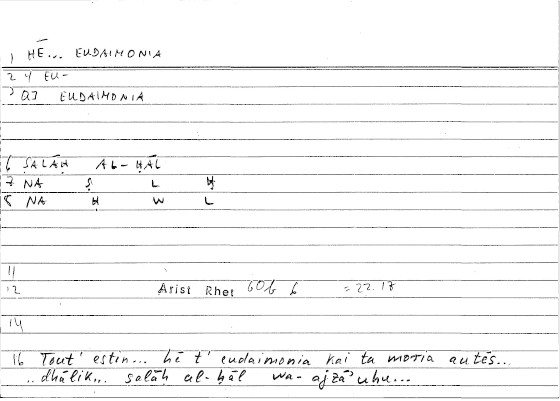 1 HĒ... EUDAIMONIA
2 4 EU-
3 QJ EUDAIMONIA
6 ṢALĀḤ AL-ḤĀL
7 NA Ṣ L Ḥ
8 NA Ḥ W L
11
12 Arist Rhet 60b 6 = 22.17
14
16 Tout' estin... hē t' eudaimonia kai ta moria autēs...
..dhālik... ṣalāḥ al-ḥāl wa-ajzā'uhu...